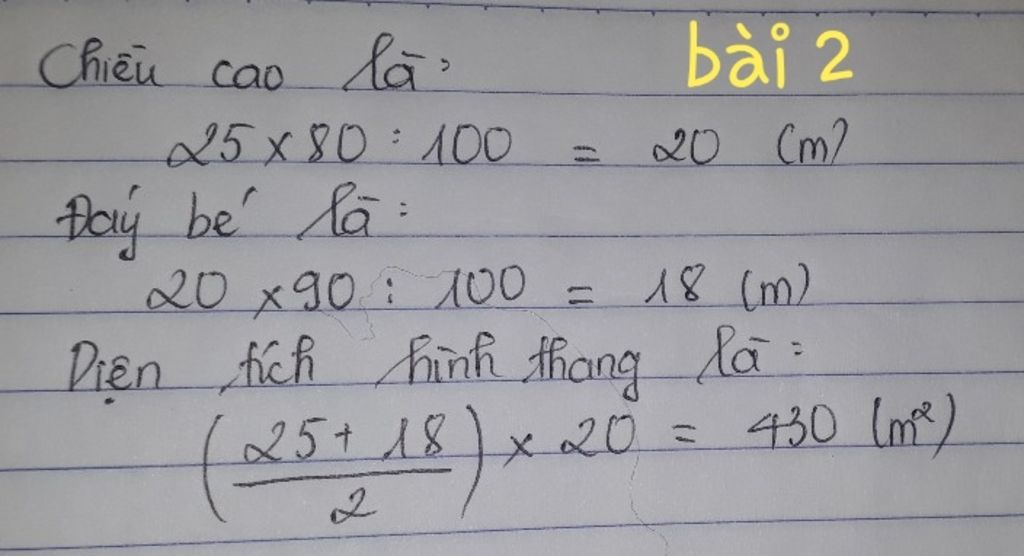 Chiều cao là:
bài 2
25 x 80 : 100 = 20 (m)
Đáy bé là:
20 x 90 : 100 = 18 (m)
Diện tích hình thang là:
(25 + 18 / 2) x 20 = 430 (m²)